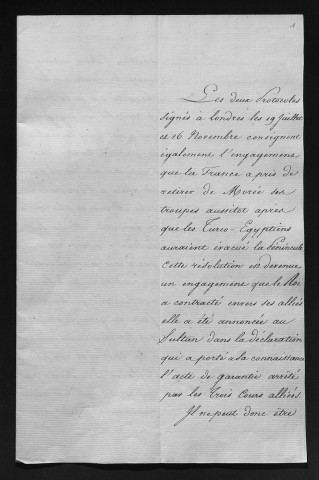 1
Les deux Protocoles
signés à Londres les 19 Juillet
et 16 Novembre consignent
également l'engagement
que la France a pris de
retirer de Morée ses
troupes aussitot après
que les Turco-Egyptiens
auraient évacué la Péninsule
Cette résolution est devenue
un engagement que le Roi
a contracté envers ses alliés
elle a été annoncée au
Sultan dans la déclaration
qui a porté à sa connaissance
l'acte de garantie arrêté
par les Trois Cours alliées.
Il ne peut donc être